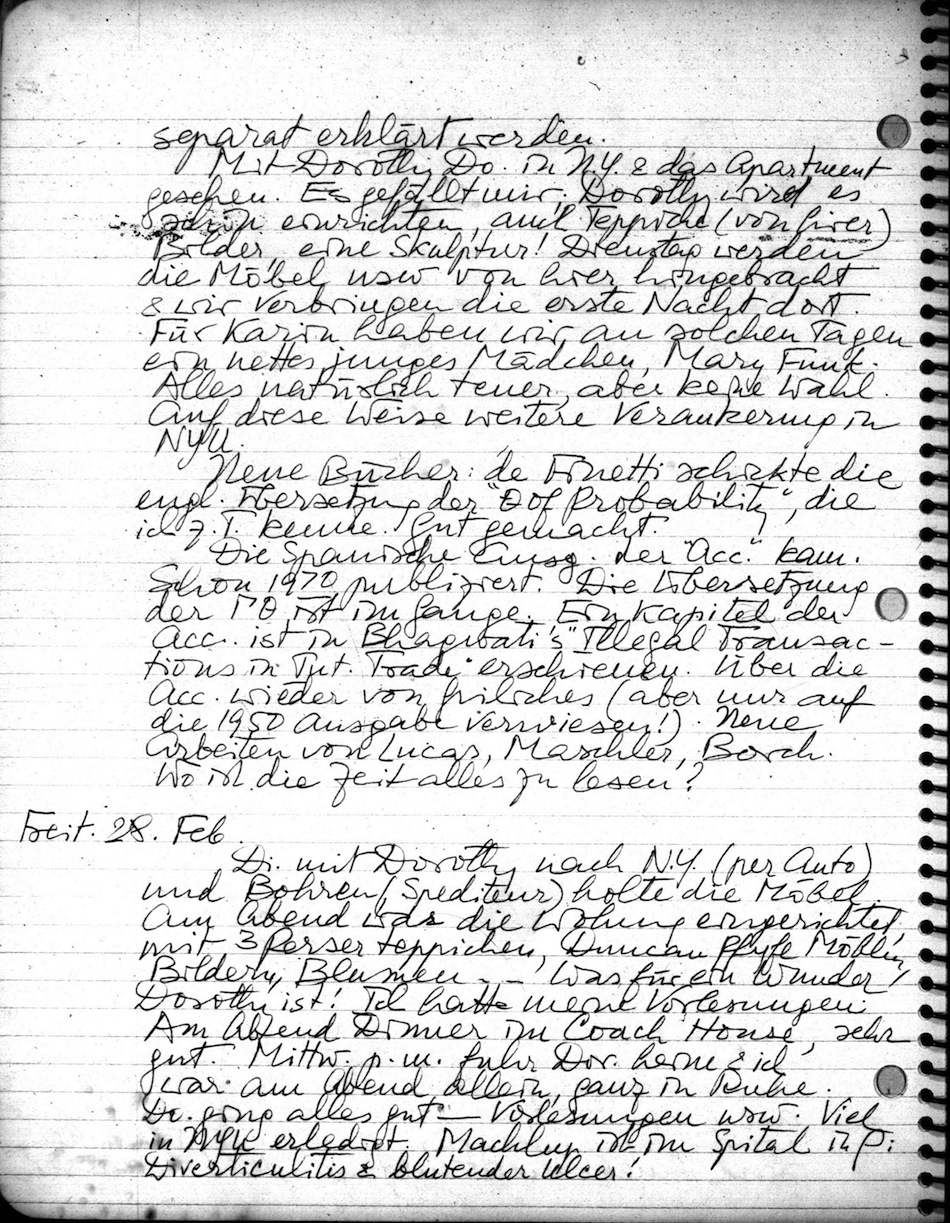 separat erklärt werden.
Mit Dorothy Do. in N.Y. & das Apartment
gesehen. Es gefällt mir. Dorothy wird es
schön einrichten, auch Teppiche (von hier)
Bilder, eine Skulptur! Dienstag werden
die Möbel usw von hier hingebracht
& wir verbringen die erste Nacht dort.
Für Karin haben wir an solchen Tagen
ein nettes junges Mädchen, Mary Funk.
Alles natürlich teuer, aber keine Wahl.
Auf diese Weise weitere Verankerung in
NYU.
Neue Bücher: de Finetti schickte die
engl. Übersetzung der "Θ of Probability", die
ich z. T. kenne. Gut gemacht.
Die Spanische Ausg. der "Acc." kam.
Schon 1970 publiziert. Die Übersetzung
der ist im Gange. Ein Kapitel der
Acc. ist in Bhagwati's "Illegal Transac-
tions in Int. Trade" erschienen. Über die
Acc. wieder von Griliches (aber nur auf
die 1950 Ausgabe verwiesen!). Neue
Arbeiten von Lucas, Maschler, Borch.
Wo ist die Zeit alles zu lesen?
Freit. 28. Feb
Di. mit Dorothy nach N.Y. (per Auto)
und Bohren (Spediteur) holte die Möbel.
Am Abend war die Wohnung eingerichtet,
mit 3 Perserteppichen, Duncan Phyfe Möbeln,
Bildern, Blumen -- Was für ein Wunder
Dorothy ist! Ich hatte meine Vorlesungen.
Am Abend Dinner im Coach House, sehr
gut. Mittw. p.m. fuhr Dor. heim & ich
war am Abend allein, ganz in Ruhe.
Do. ging alles gut — Vorlesungen usw. Viel
in NYU erledigt. Machlup ist im Spital in P:
Diverticulitis & blutender Ulcer!